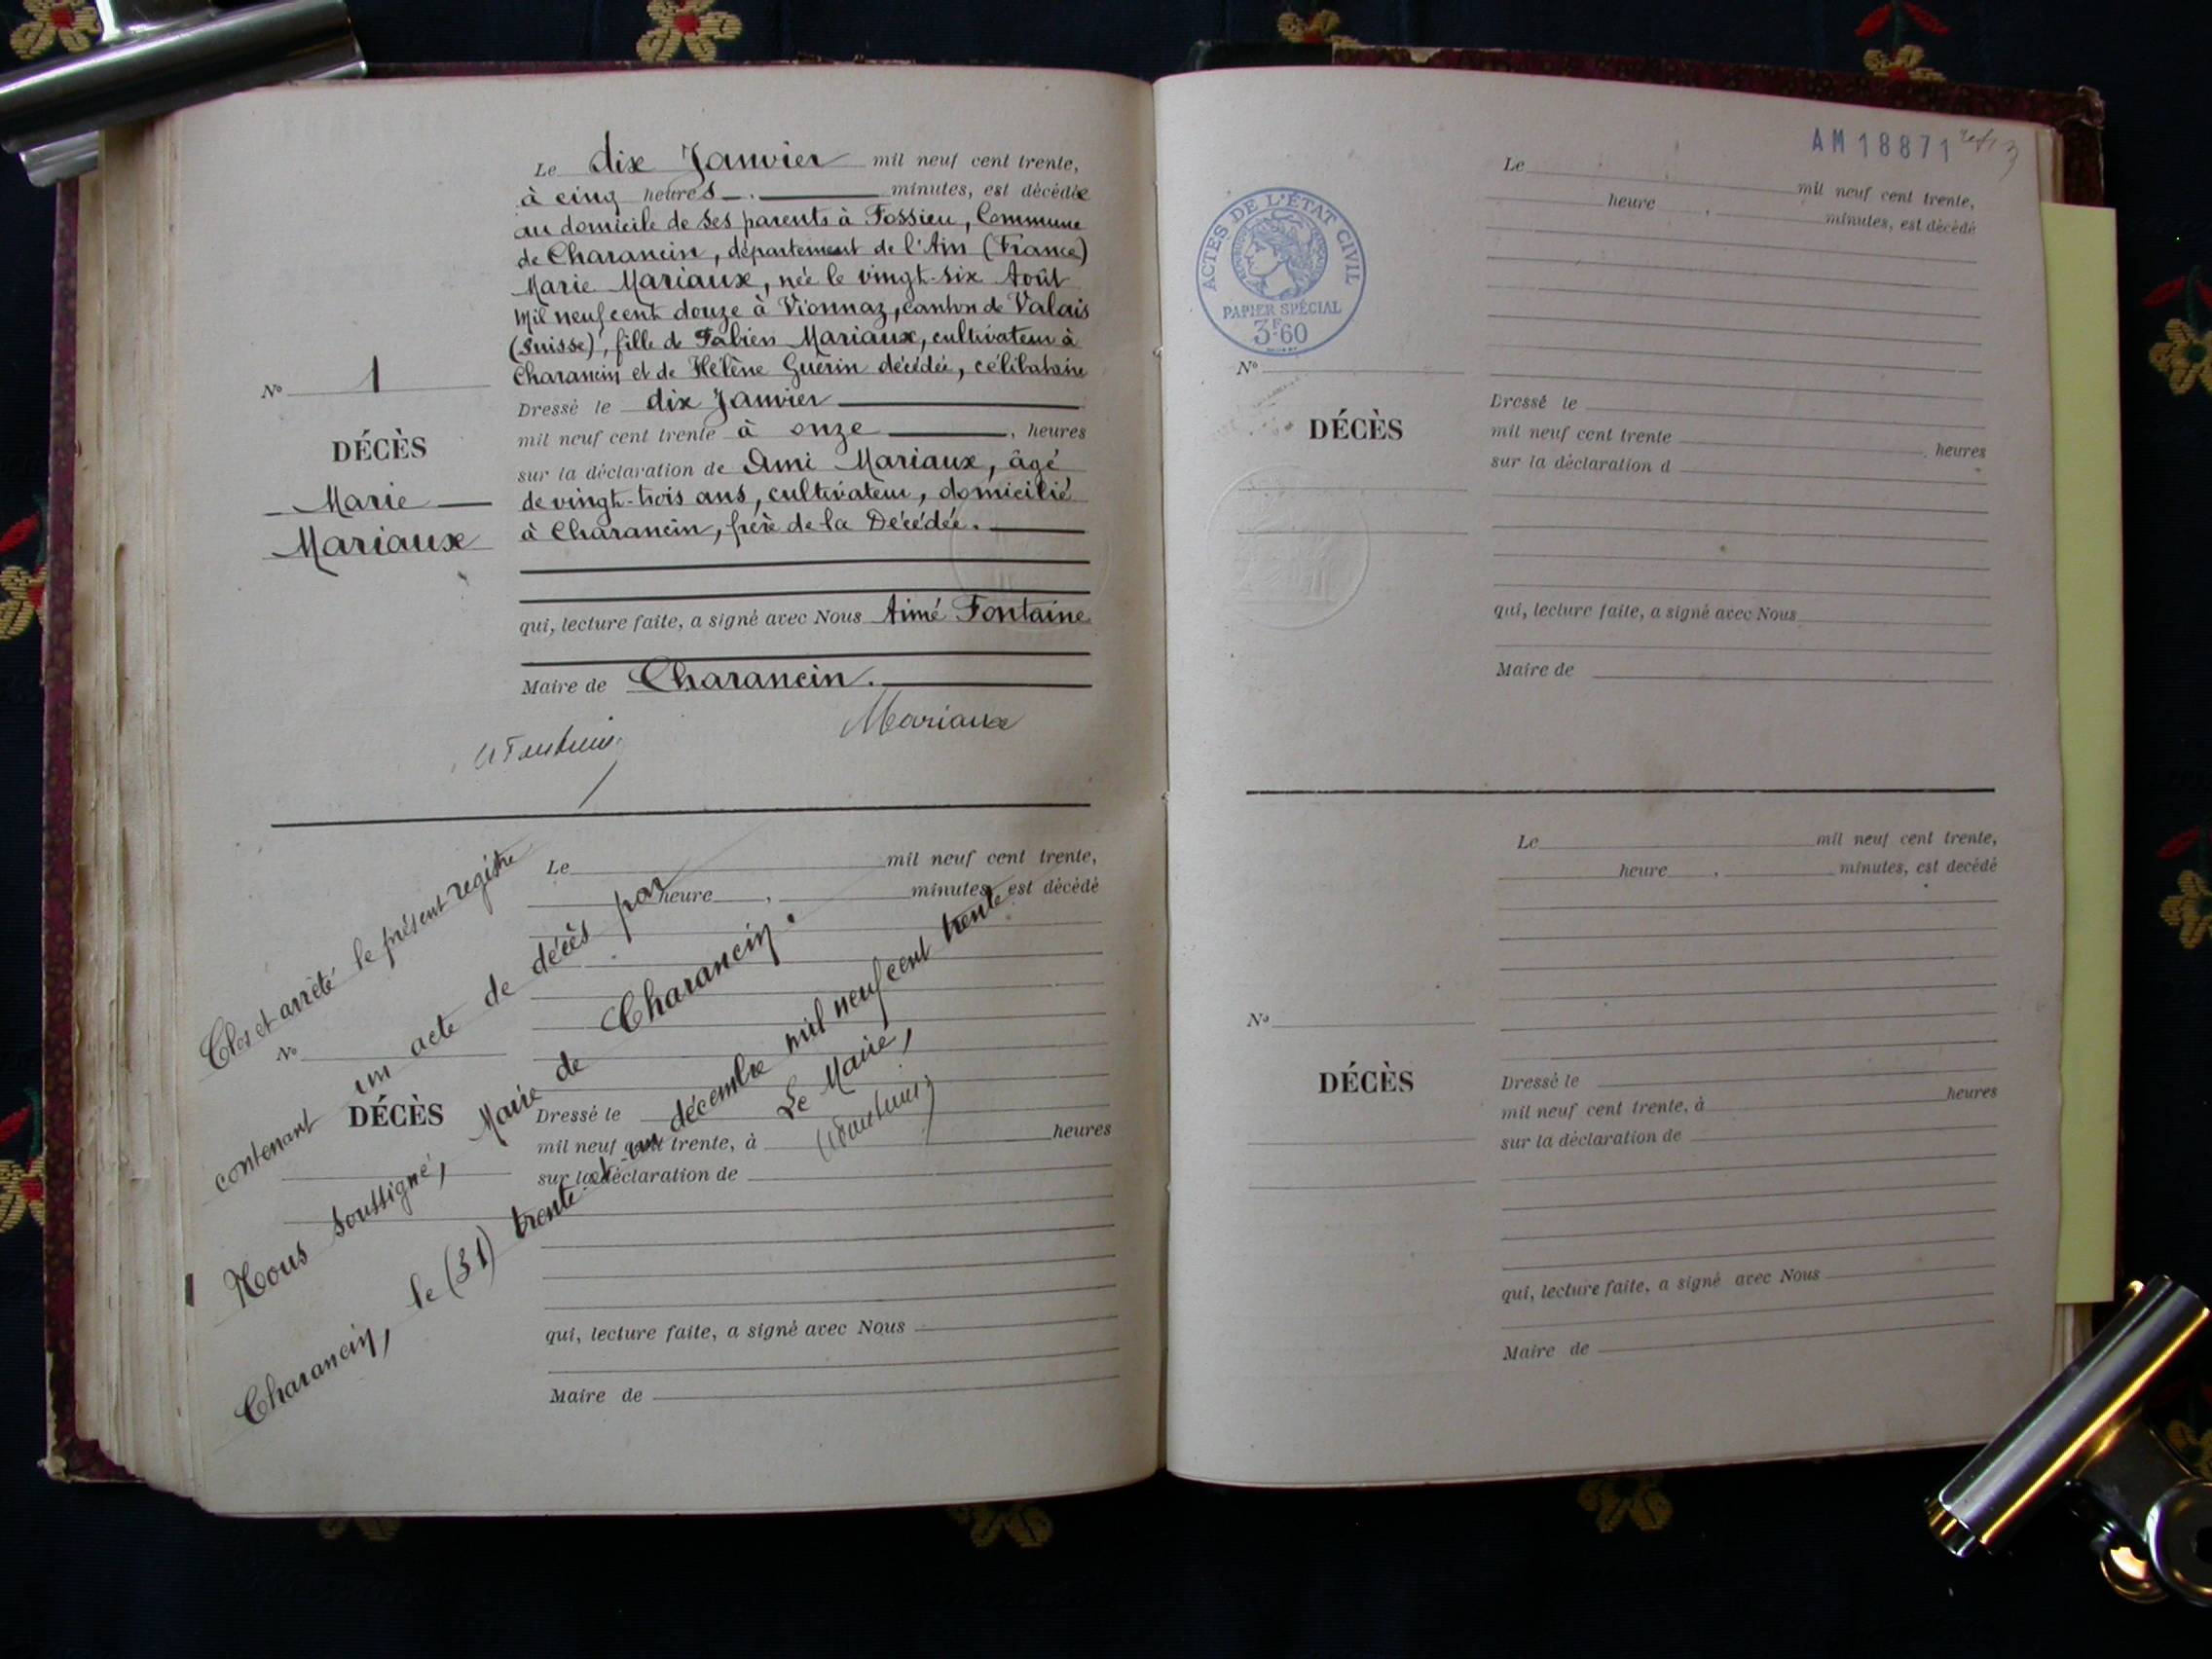 Le dix Janvier mil neuf cent trente,
à cinq heures — . — minutes, est décédée
au domicile de ses parents à Fossieu, Commune
de Charancin, département de l'Ain (France)
Marie Mariaux, née le vingt-six Août
mil neuf cent douze à Vionnaz, canton de Valais
(Suisse), fille de Fabien Mariaux, cultivateur à
Charancin et de Hélène Guérin décédée, célibataire
N° 1
DÉCÈS
Marie
Mariaux
Dressé le dix Janvier
mil neuf cent trente à onze , heures
sur la déclaration de Ami Mariaux, âgé
de vingt-trois ans, cultivateur, domicilié
à Charancin, frère de la Décédée.
qui, lecture faite, a signé avec Nous Aimé Fontaine
Maire de Charancin.
Mariaux
Le mil neuf cent trente,
heure , minutes, est décédé
N°
DÉCÈS
Dressé le
mil neuf cent trente, à heures
sur la déclaration de
qui, lecture faite, a signé avec Nous
Maire de
Clos et arrêté le présent registre
contenant un acte de décès par
Nous soussigné, Maire de Charancin.
Charancin, le (31) trente et un décembre mil neuf cent trente
Le Maire,
AM 18871
ACTES DE L'ÉTAT CIVIL
PAPIER SPÉCIAL
3F60
Le mil neuf cent trente,
heure , minutes, est décédé
N°
DÉCÈS
Dressé le
mil neuf cent trente , heures
sur la déclaration d
qui, lecture faite, a signé avec Nous
Maire de
Le mil neuf cent trente,
heure , minutes, est decédé
N°
DÉCÈS
Dressé le
mil neuf cent trente, à heures
sur la déclaration de
qui, lecture faite, a signé avec Nous
Maire de